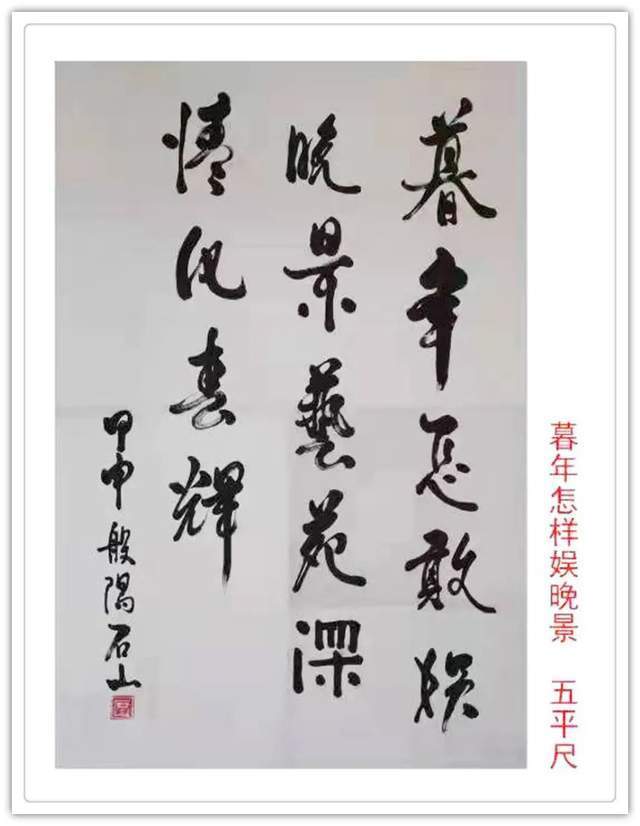 暮年怎敢娱
晚景藝苑深
情化春輝
甲申 般陽石山
暮年怎样娱晚景 五平尺